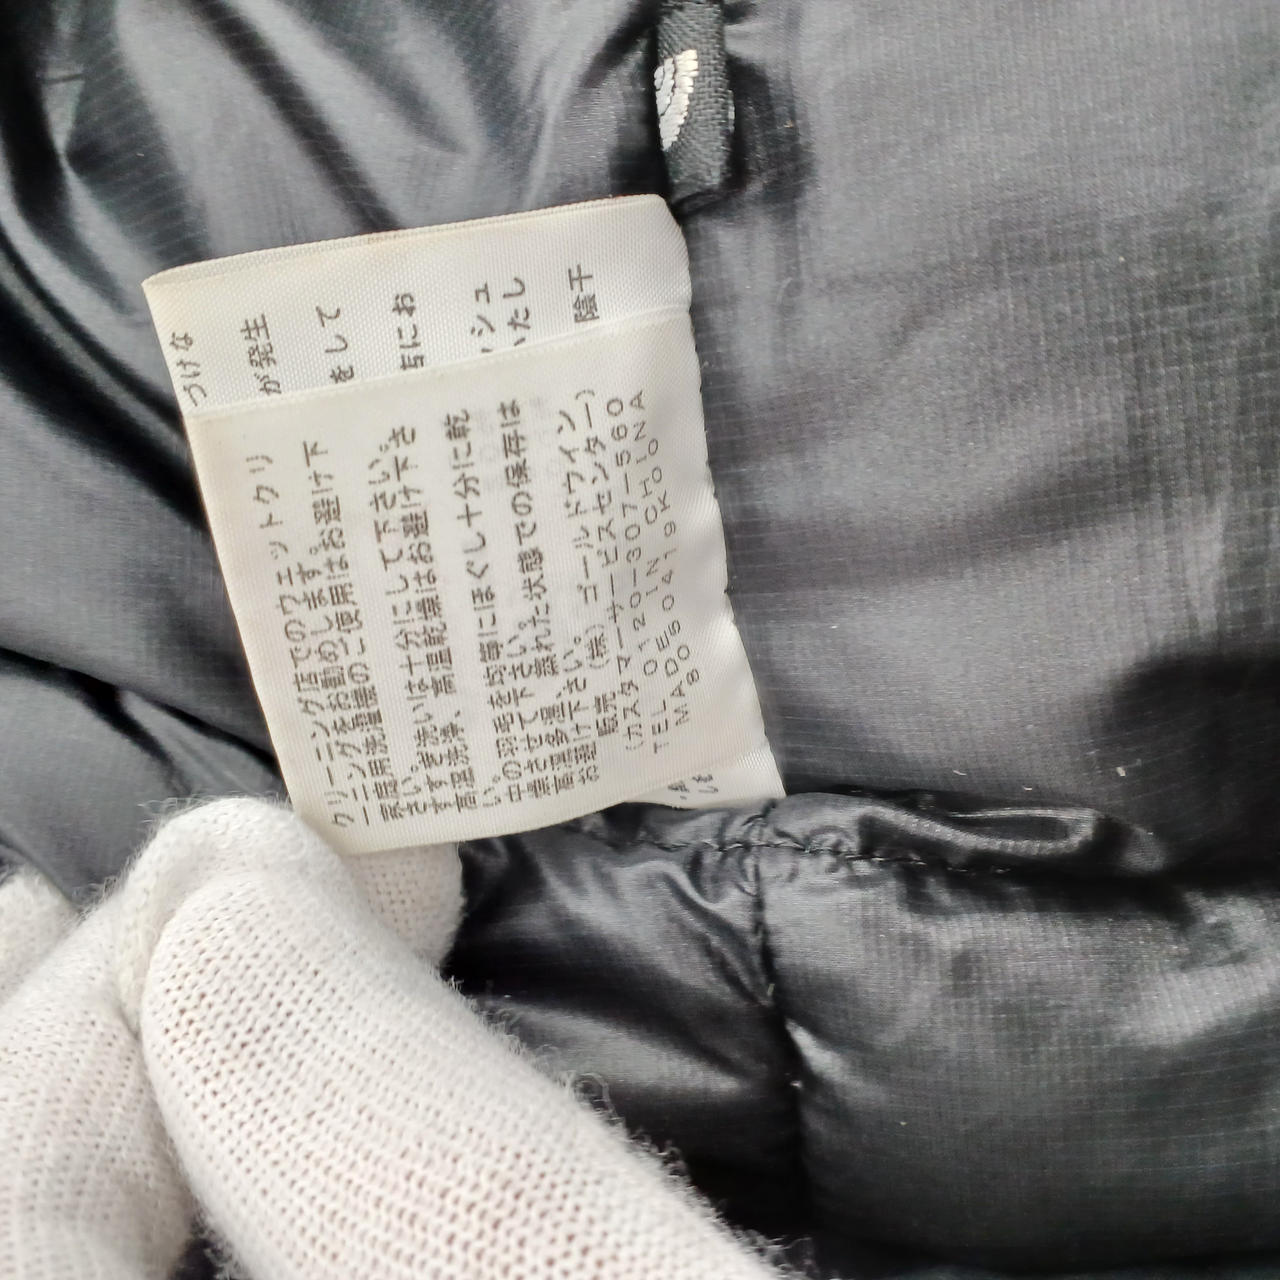 つけな
が発生
をして
店にお
ッシュ
いたし
陰干
クリーニング店でのウエットクリ
ーニングをお勧めします。
家庭用洗濯機のご使用はお避け下
さい。
すすぎ洗いは十分にして下さい。
高温洗浄、高温乾燥はお避け下さ
い。
中の羽毛を均等にほぐし十分に乾
燥させて下さい。
高温多湿、蒸れた状態での保存は
お避け下さい。
販売 (株) ゴールドウイン
(カスタマーサービスセンター)
TEL 0120-307-560
MADE IN CHINA
805 0419KO